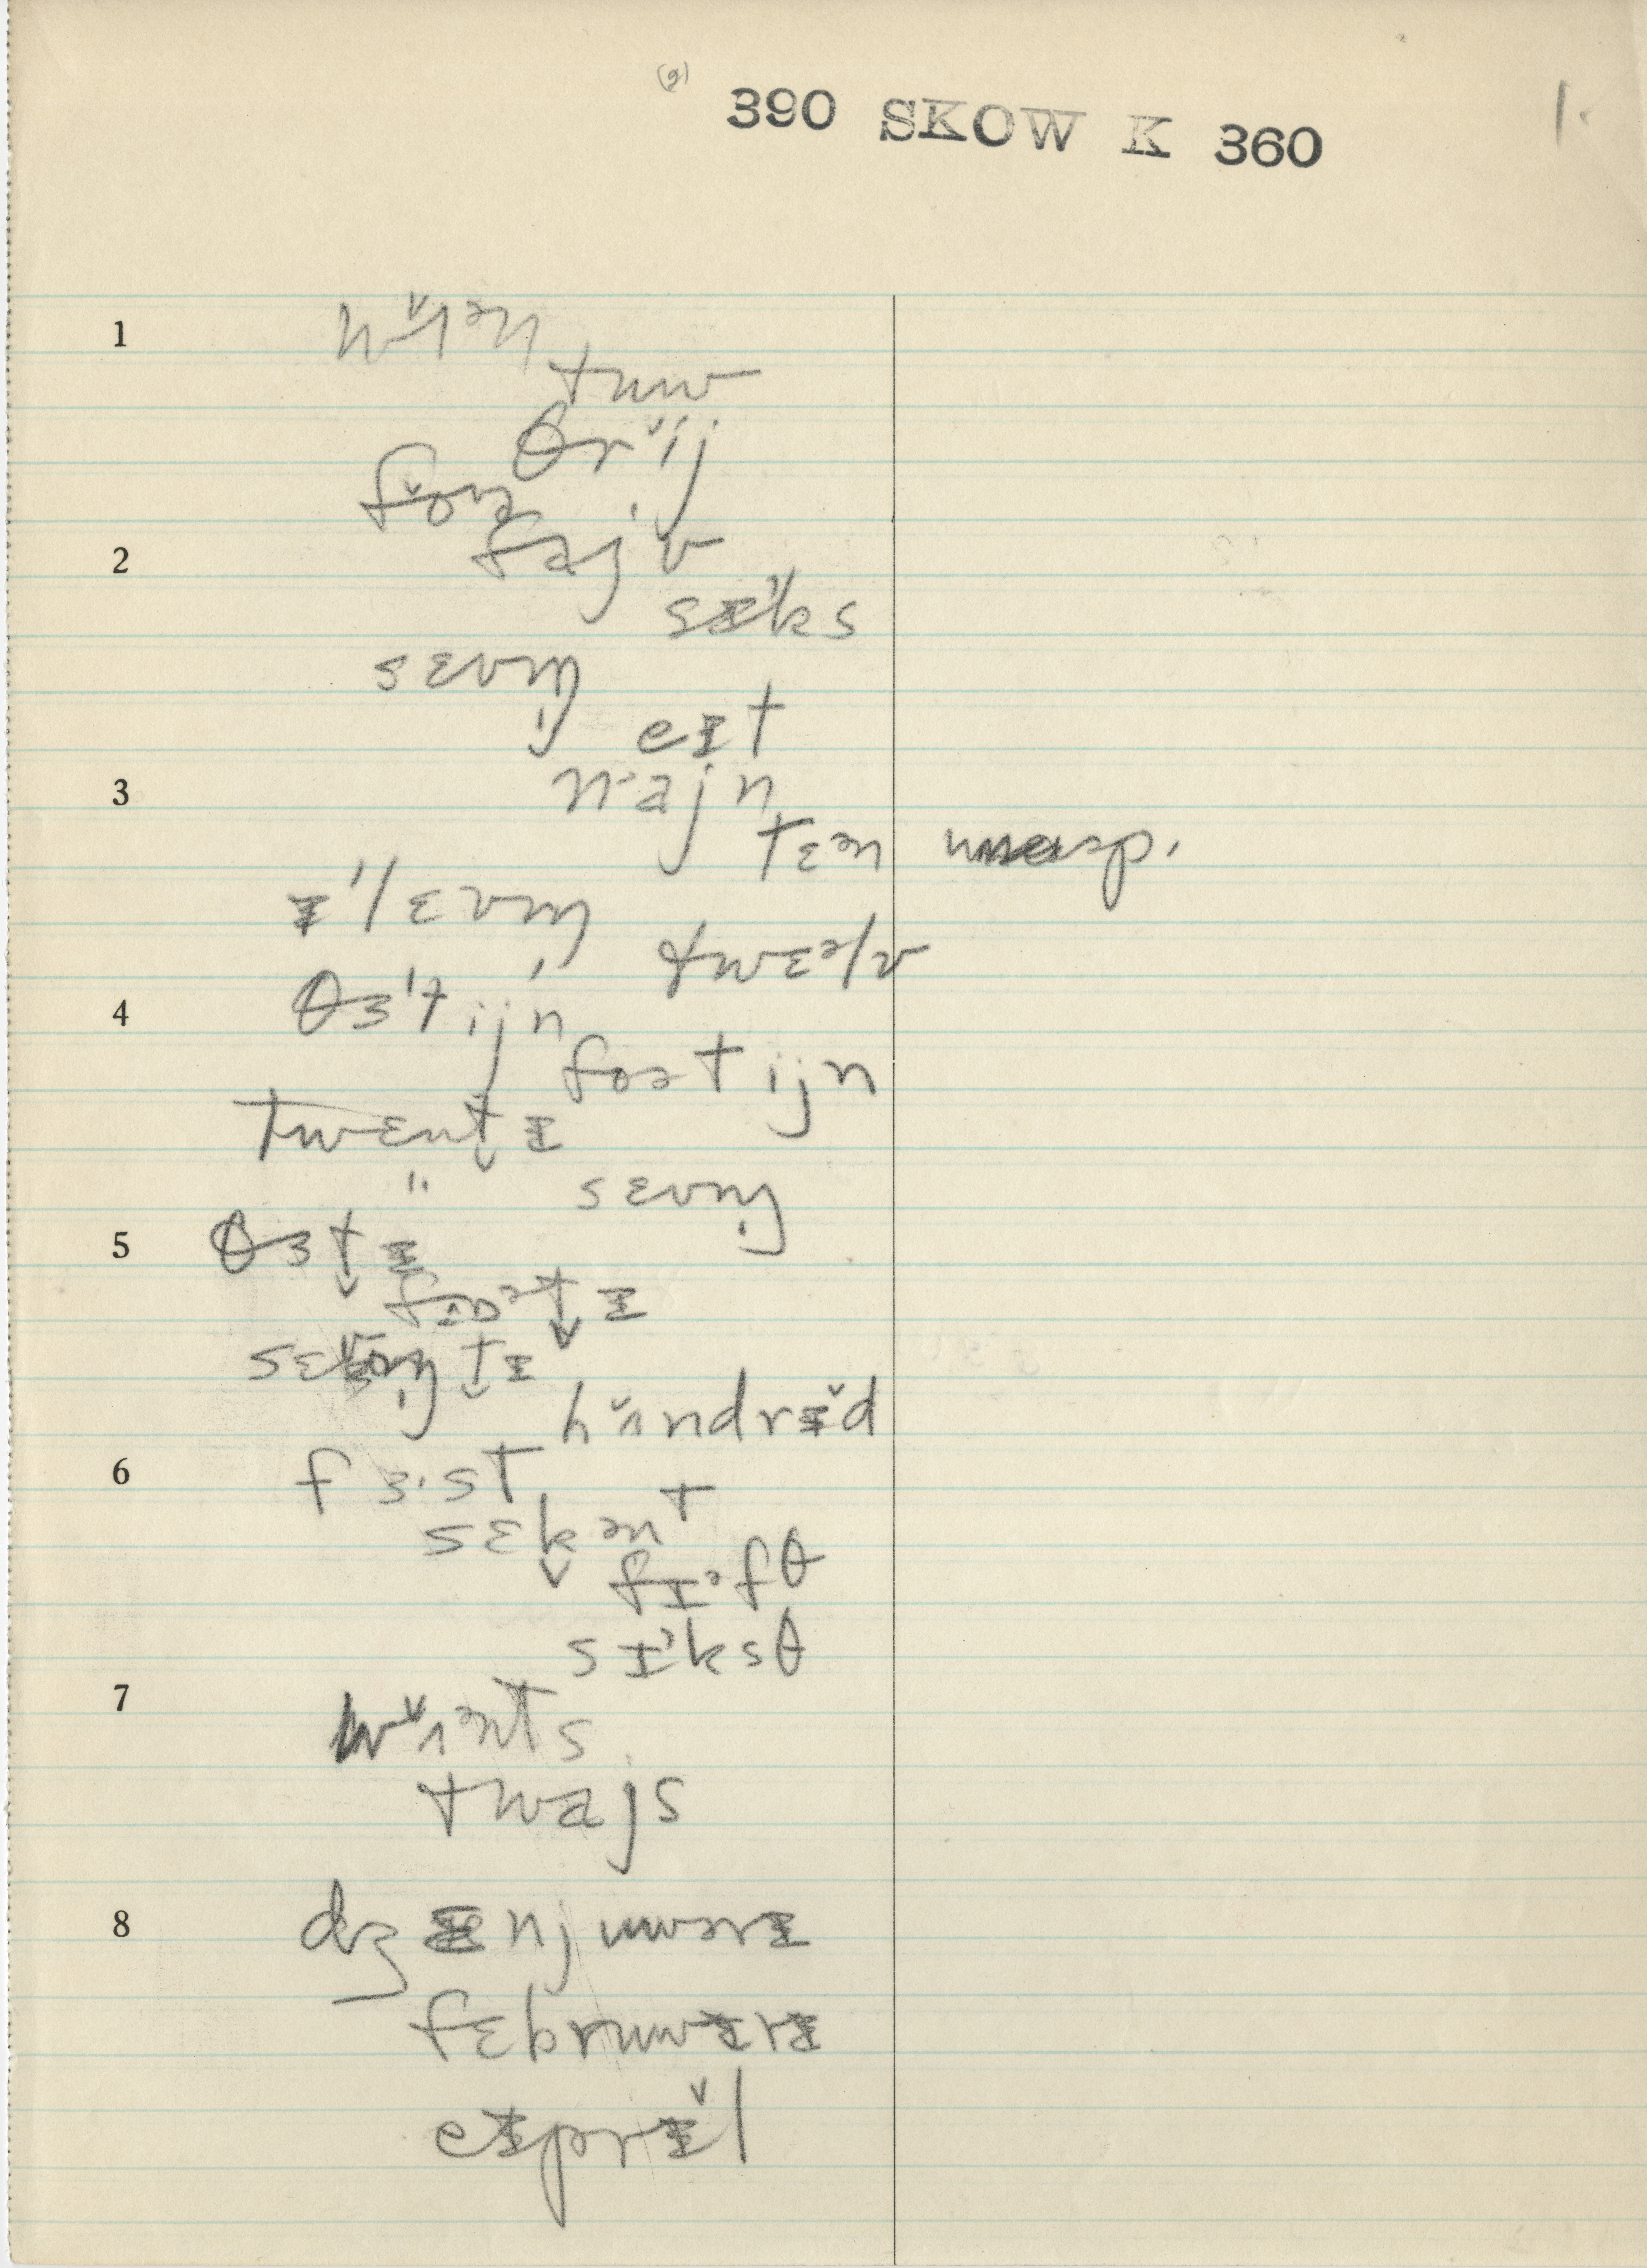 (g)
390 SKOW K 360
1.
1
wʌ̌ᵊn
tuw
θrǐj
2
fǒɚ
fajv
sɪᵊks
sɛvm̩
eɪt
3
najn
tɛᵊn unasp.
ɪ'lɛvm̩
twɛᵊlv
4
θɜ'tijn
foətijn
twɛnt̬ɪ
" sɛvm̩
5
θɜt̬ɪ
foᵊt̬ɪ
sɛvm̩t̬ɪ
hʌ̌ndrɪ̌d
6
fɜ·st
sɛk̬ənt
fɪᵊfθ
sɪᵊksθ
7
wʌ̌ᵊnts
twajs
8
dʒænjuwərɪ
fɛbruwɛrɪ
eɪprɪ̌l